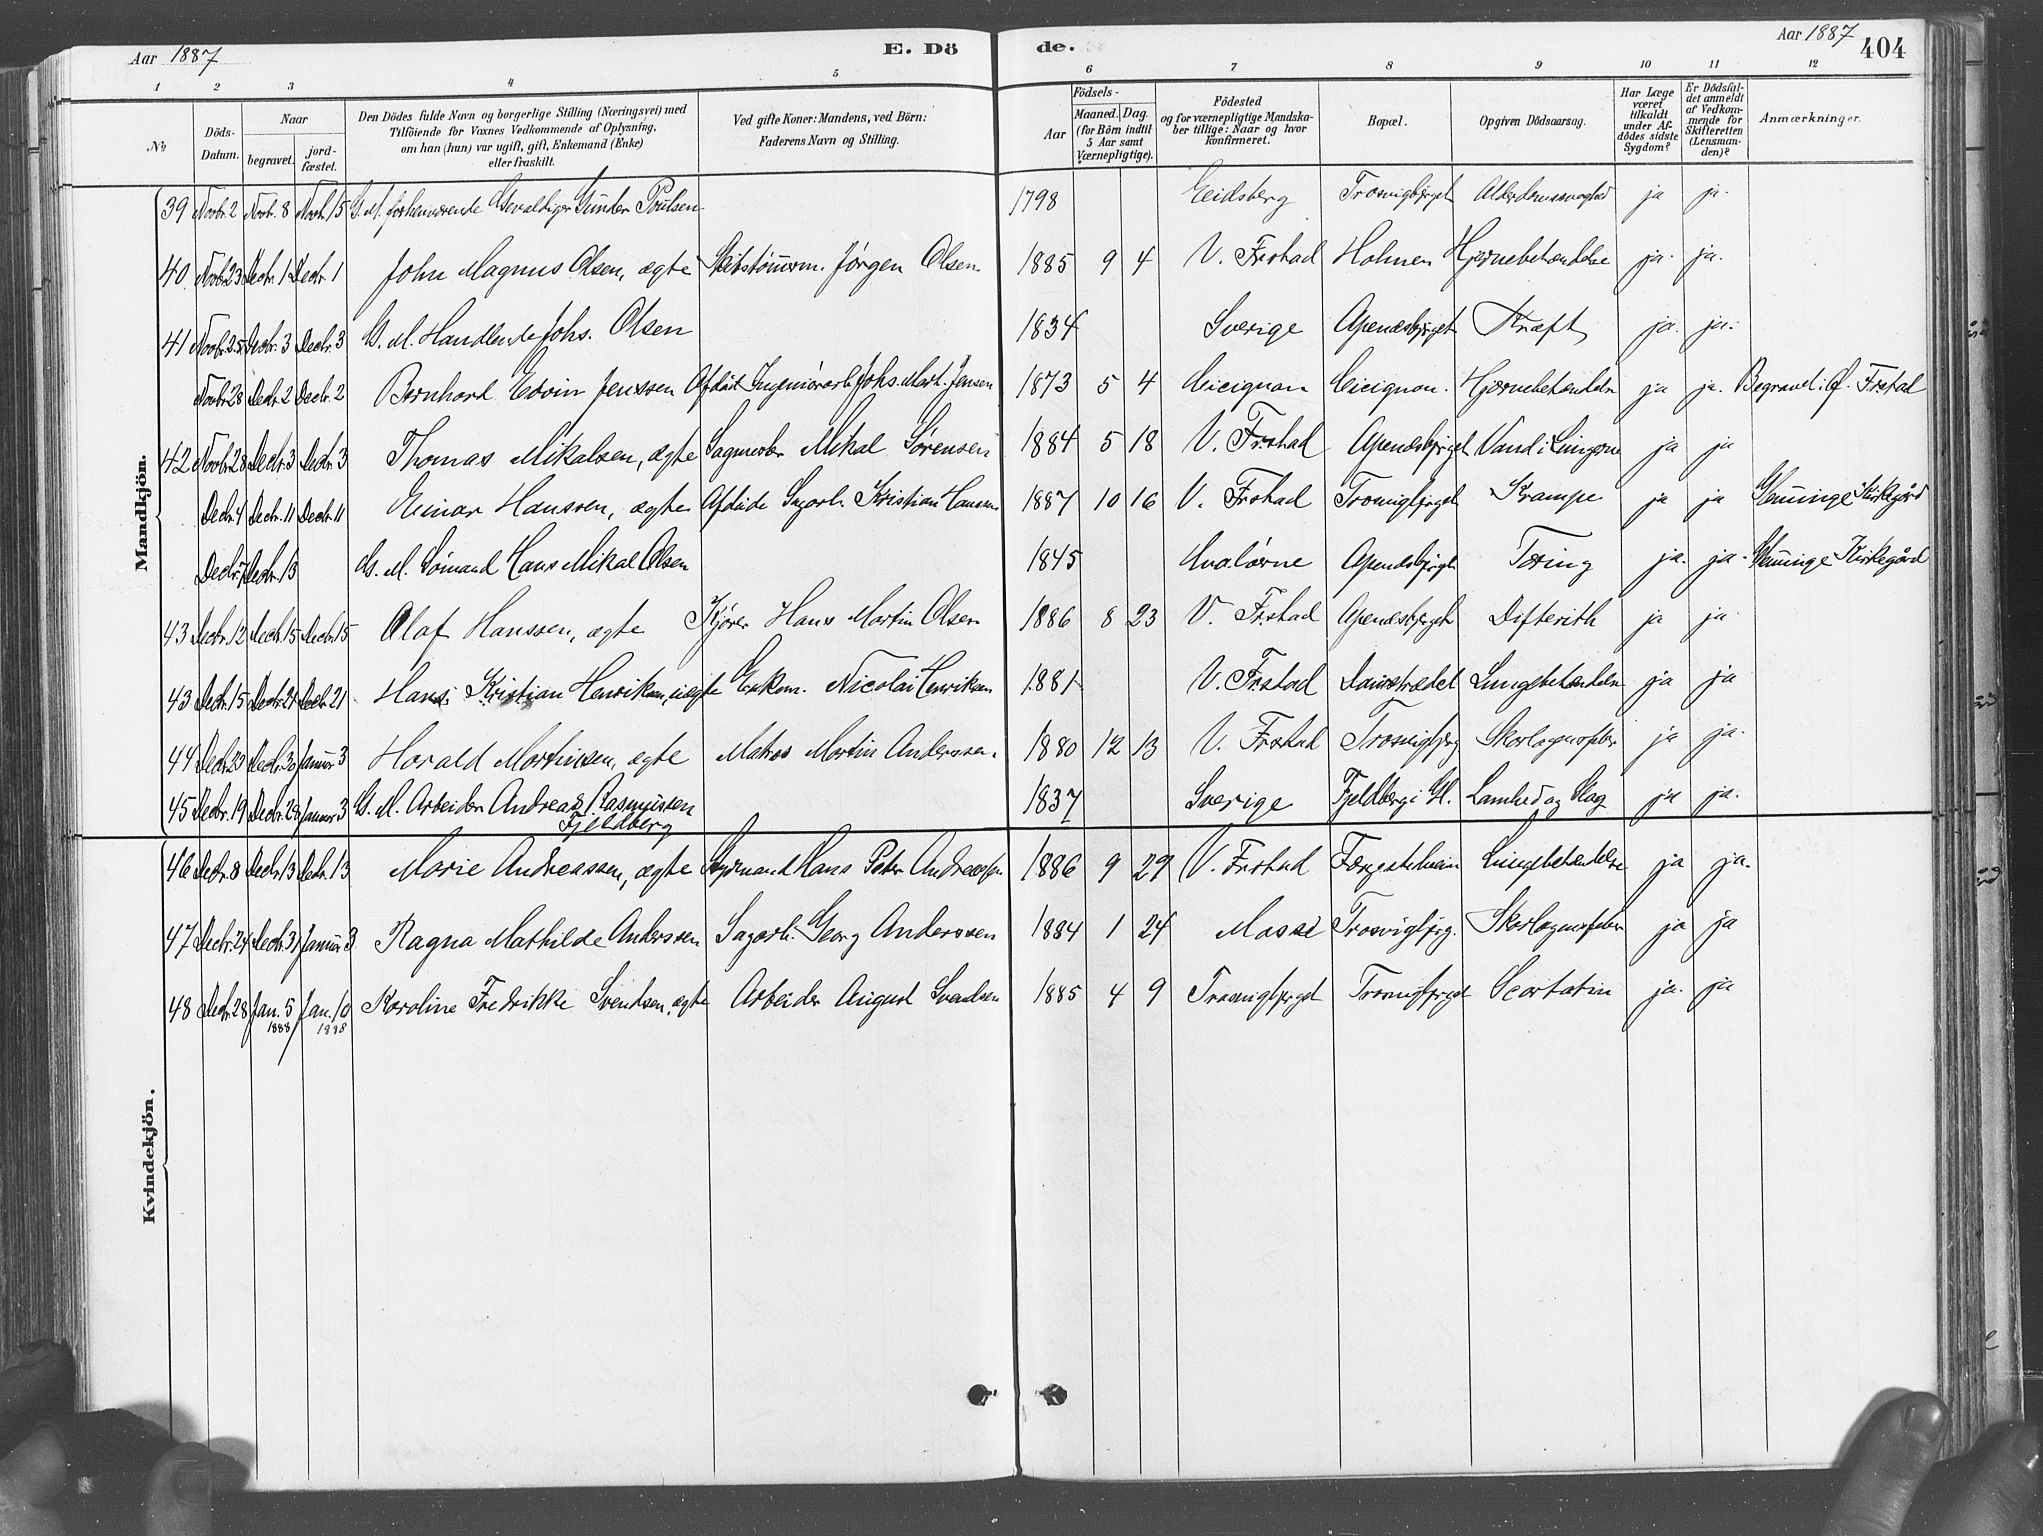 Aar 1887 E. Döde. Aar 1887 404
1 2 3 4 5 6 7 8 9 10 11 12
No Döds-Datum. Naar begravet. jordfæstet. Den Dödes fulde Navn og borgerlige Stilling (Næringsvei) med Tilföiende for Voxnes Vedkommende af Oplysning, om han (hun) var ugift, gift, Enkemand (Enke) eller fraskilt. Ved gifte Koner: Mandens, ved Börn: Faderens Navn og Stilling. Födsels- Aar Maaned. Dag. (for Börn indtil 5 Aar samt Værnepligtige). Födested og for værnepligtige Mandskaber tillige: Naar og hvor konfirmeret. Bopæl. Opgiven Dödsaarsag. Har Læge været tilkaldt under Afdödes sidste Sygdom? Er Dödsfaldet anmeldt af Vedkommende for Skifteretten (Lensmanden)? Anmærkninger.
Mandkjön.
39 Novbr. 2 Novbr. 8 Novbr. 15 G. M. forhenværende Gevaldiger Gunder Poulsen 1798 Eidsberg Trosvigbjerget Alderdomssvaghed ja ja.
40. Novbr. 23 Decbr. 1 Decbr. 1 John Magnus Olsen, ægte Skibstømm. Jørgen Olsen 1885 9 4 V. Frstad Holmen Hjernebetændelse ja. ja.
41 Novbr. 25 Decbr. 3 Decbr. 3 G. M. Handlende Johs. Olsen 1834 Sverige Apenæsbjrget Kræft ja. ja.
Novbr. 28 Decbr. 2 Decbr. 2 Bernhard Edvin Jenssen Afdød Ingeniørarb. Johs. Mart. Jensen 1873 5 4 Cicignon Cicignon. Hjernebetændelse ja ja. Begravet i Ø. Frstad
42 Novbr. 28 Decbr. 3 Decbr. 3 Thomas Mikalsen, ægte Sagmester Mikal Sørensen 1884 5 18 V. Frstad Apenæsbjrget Vand i Lungerne ja ja
Decbr. 4 Decbr. 11 Decbr. 11 Einar Hanssen, ægte Afdøde Sagarb. Kristian Hanssen 1887 10 16 V. Frstad Trosvigbjrget Krampe ja ja Glemminge Kirkegård
Decbr. 7 Decbr. 13 G. M. Sømand Hans Mikal Olsen 1845 Hvaløerne Apenæsbjrget Tæring ja. ja. Glemminge Kirkegård
43 Decbr. 12 Decbr. 15 Decbr. 15 Olaf Hanssen, ægte Kjører Hans Martin Olsen 1886 8 23 V. Frstad Apenæsbjerget Difterith ja ja
43 Decbr. 15 Decbr. 21 Decbr. 21 Hans Kristian Henriksen, uægte Enkem. Nicolai Henriksen 1881 V. Frstad Damstrædet Lungebetændelse ja ja
44 Decbr. 20 Decbr. 30 Januar 3 Harald Martinsen, ægte Matros Martin Anderssen. 1880 12 13 V. Frstad Trosvigbjerg Skarlagensfeber ja ja.
45 Decbr. 19 Decbr. 28 Januar 3 G. M. Arbeider Andreas Rasmussen 1837 Sverige Fjeldberg i Gl. Lamhed og Slag ja ja.
Fjeldberg
Kvindekjön.
46 Decbr. 8 Decbr. 13 Decbr. 13 Marie Andreassen, ægte Styrmand Hans Peter Andreassen 1886 9 29 V. Frstad Færgestedveien Lungebetændelse ja ja.
47 Decbr. 24 Decbr. 31 Januar 3 Ragna Mathilde Anderssen Sagarb. Georg Anderssen 1884 1 24 Mosse Trosvigbjrg. Skarlagensfeber ja ja
48 Decbr. 28 Jan. 5 1888 Jan. 10 1888 Karoline Fredrikke Svendsen, ægte Arbeider August Svendsen 1885 4 9 Trosvigbjerget Trosvigbjrget Scarlatin ja. ja